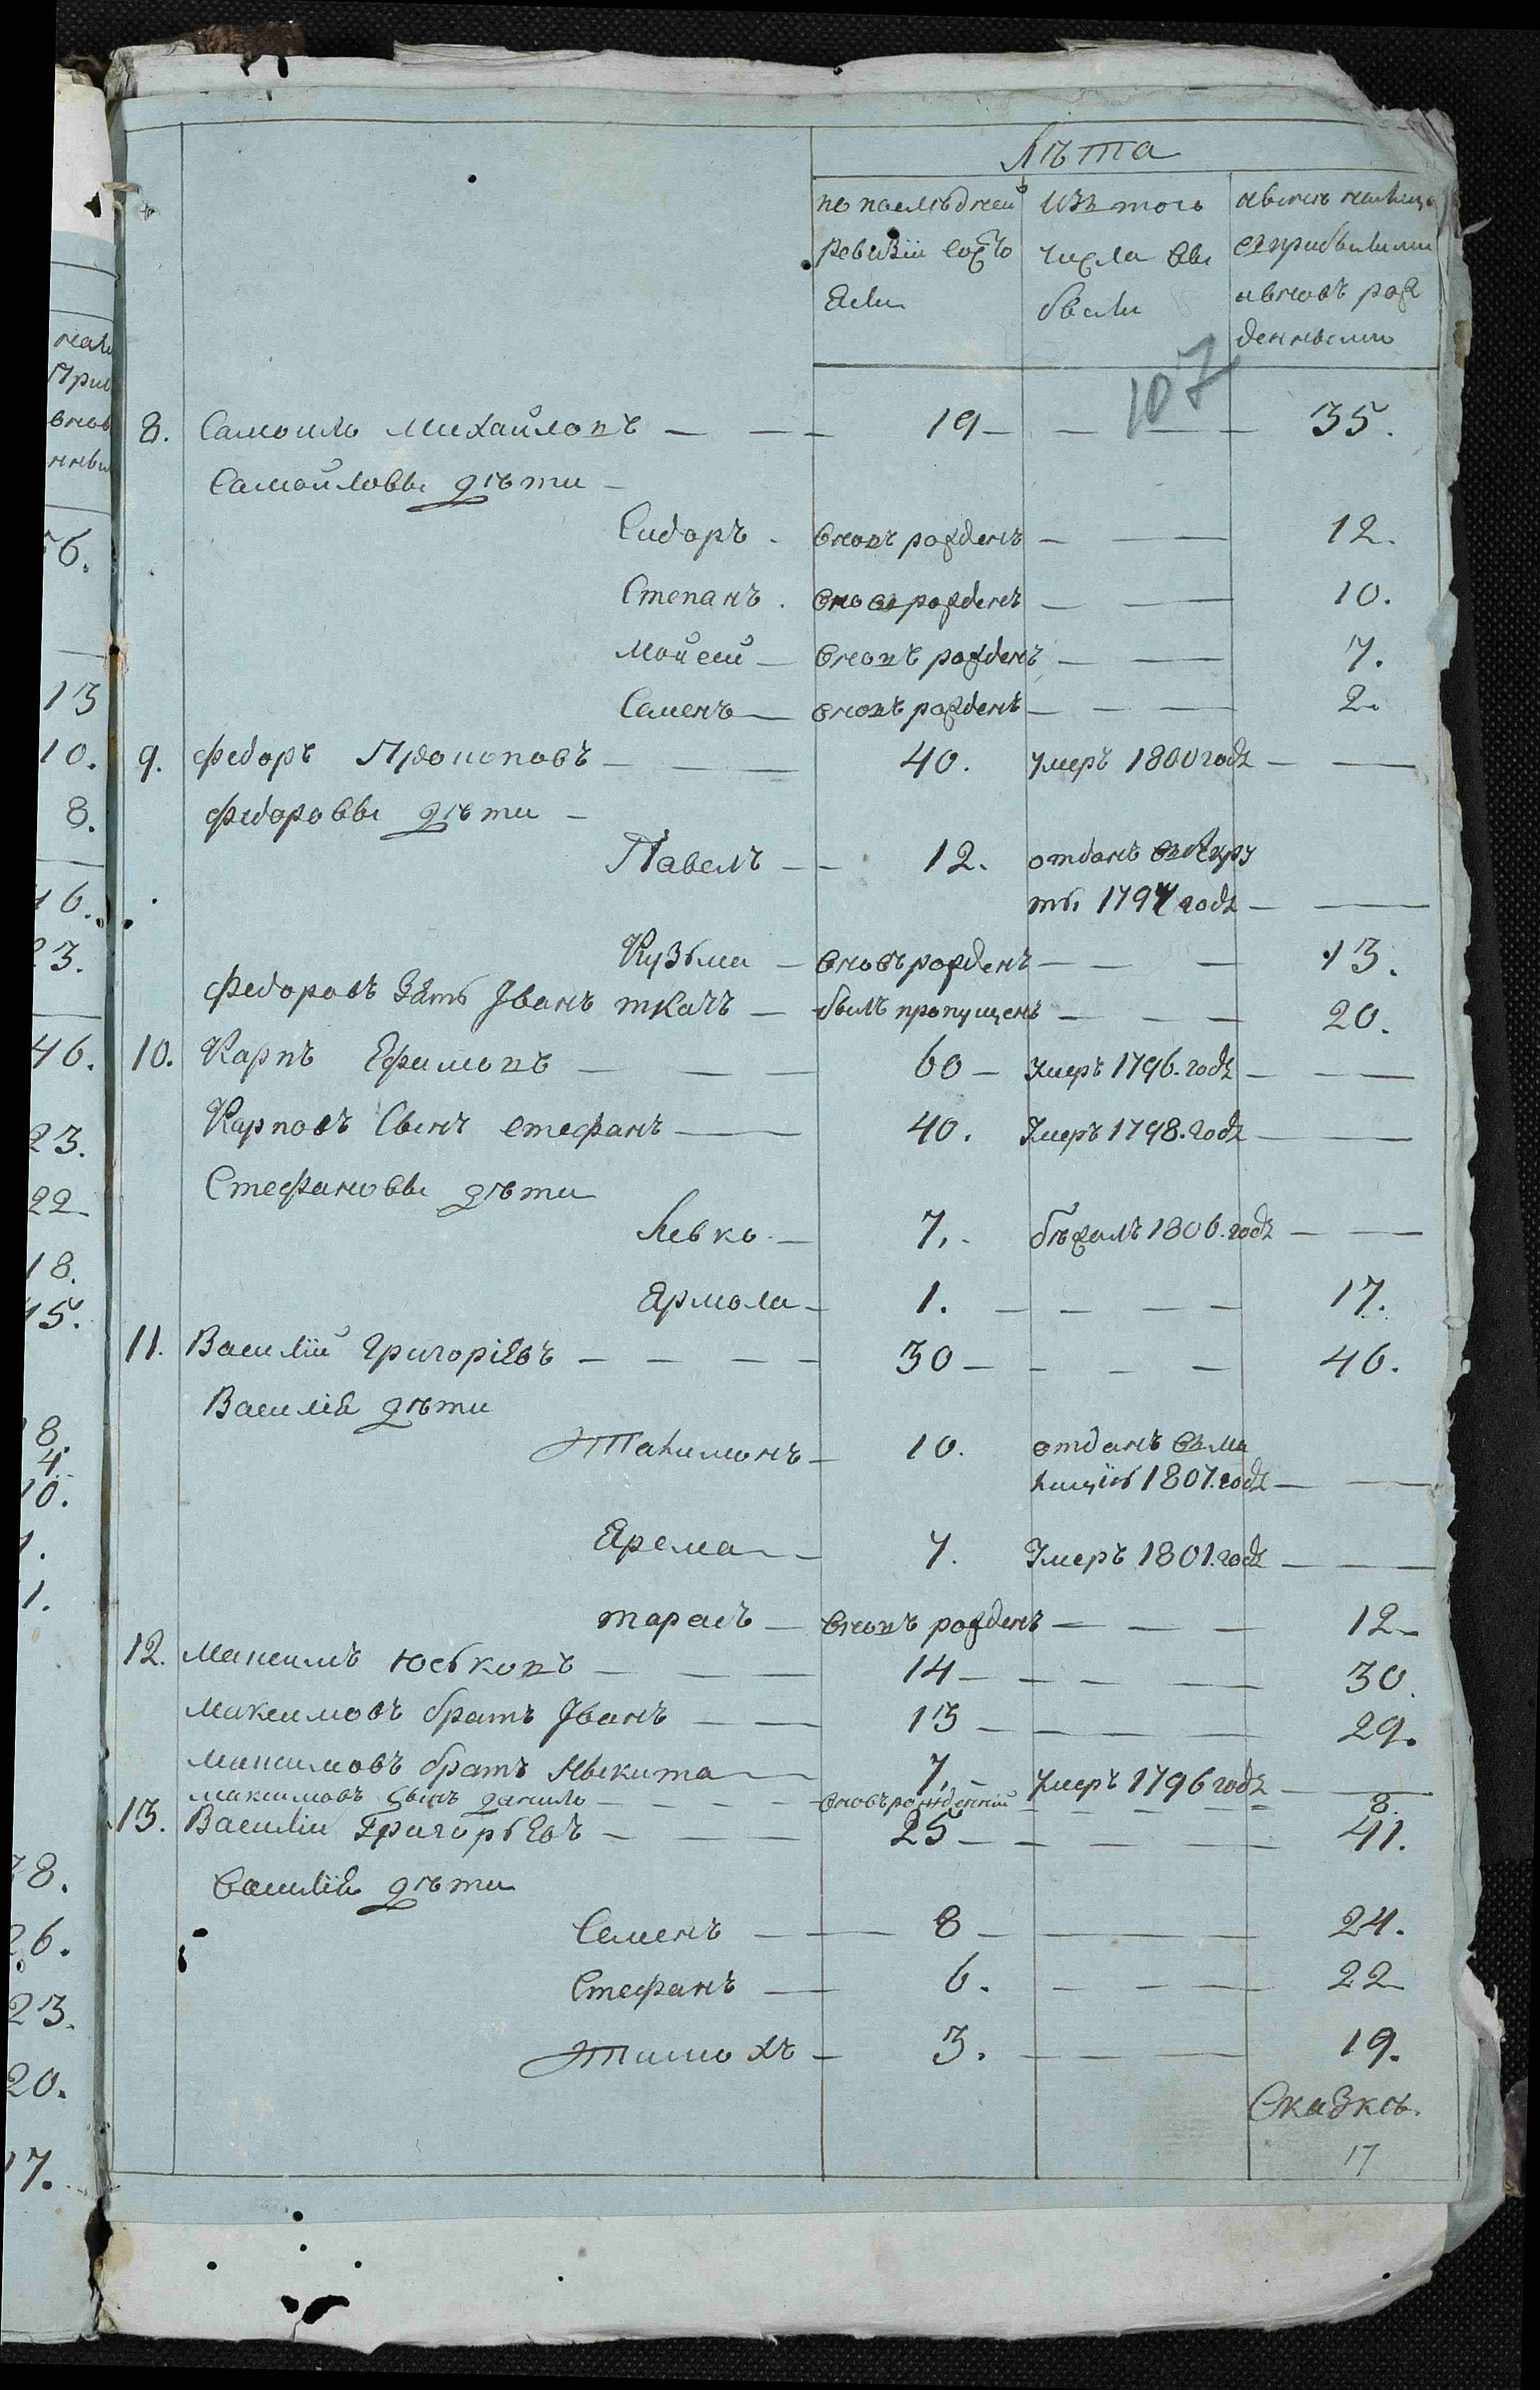 Лѣта
по последней
ревизiи состо
яли
изъ того
числа вы
были
нынѣ налицо
съ прибылыми
и вновь рож
денными
107
8. Самоило Михайловъ — — — 19 — — — — 35.
Самойловы дѣти —
Сидоръ. вновъ рожденъ — — 12.
Степанъ. вновъ рожденъ — — 10.
Мойсей — вновъ рожденъ — — 7.
Семенъ — вновъ рожденъ — — — 2.
9. Федоръ Прокоповъ — — — 40. умеръ 1800 года — —
Федоровы дѣти —
Павелъ — — 12. отданъ въ рекру
ты 1797 года — —
Кузьма — вновъ рожденъ — — — 13.
Федоровъ Зять Iванъ ткачъ — былъ пропущенъ — — — 20.
10. Карпъ Ефимовъ — — — 60 — Умеръ 1796. года — — —
Карповъ Сынъ Стефанъ — — 40. Умеръ 1798. года — —
Стефановы дѣти
Левко — 7. — бѣжалъ 1806. года — —
Ярмола — 1. — — — — 17.
11. Василiй Григорiевъ — — — — 30 — — — — 46.
Василiя дѣти
Филимонъ — 10. отданъ въ ми
лицiю 1807. года — —
Ярема — — 7. Умеръ 1801. года — —
тарасъ — вновъ рожденъ — — — 12 —
12. Максимъ Юськовъ — — — 14 — — — — 30.
Максимовъ братъ Iванъ — — 13 — — — — 29.
Максимовъ братъ Мыкита — 7. — умеръ 1796 года —
Максимовъ Сынъ Данило — — — — вновърожденный — — — — — 8.
13. Василiй Григорьевъ — — — 25 — — — — — 41.
Василiя дѣти
Семенъ — — 8 — — — 24.
Стефанъ — — 6. — — — 22
Тимохъ — 3. — — — 19.
Сказкѣ.
17